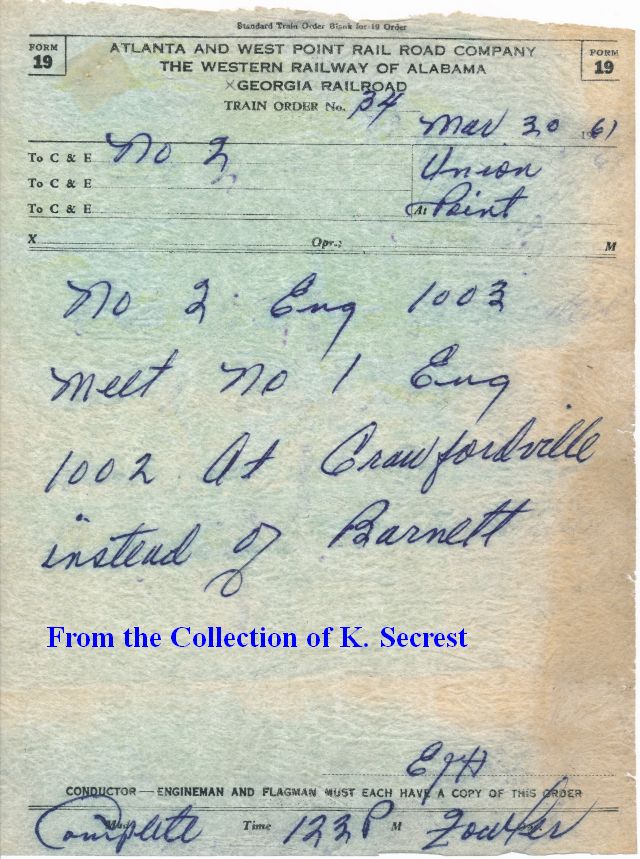 Standard Train Order Blank for 19 Order
FORM 19
ATLANTA AND WEST POINT RAIL ROAD COMPANY
FORM 19
THE WESTERN RAILWAY OF ALABAMA
XGEORGIA RAILROAD
TRAIN ORDER No. 34
Mar 30 1961
To C & E No 2
Union
To C & E
To C & E
At Point
X Opr.; M
No 2 Eng 1003
meet No 1 Eng
1002 At Crawfordville
instead of Barnett
From the Collection of K. Secrest
EJH
CONDUCTOR — ENGINEMAN AND FLAGMAN MUST EACH HAVE A COPY OF THIS ORDER
Complete Time 123 P M Fowler